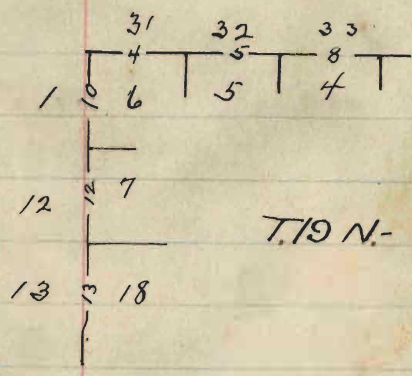 31 32 33
4 5 8
1 10 6 5 4
12 12 7
T.19 N.-
13 13 18